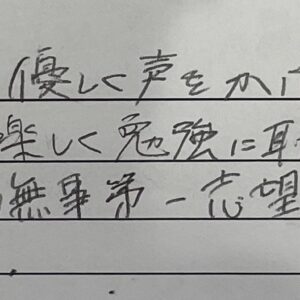 優しく声をか
楽しく勉強に取
無事第一志望